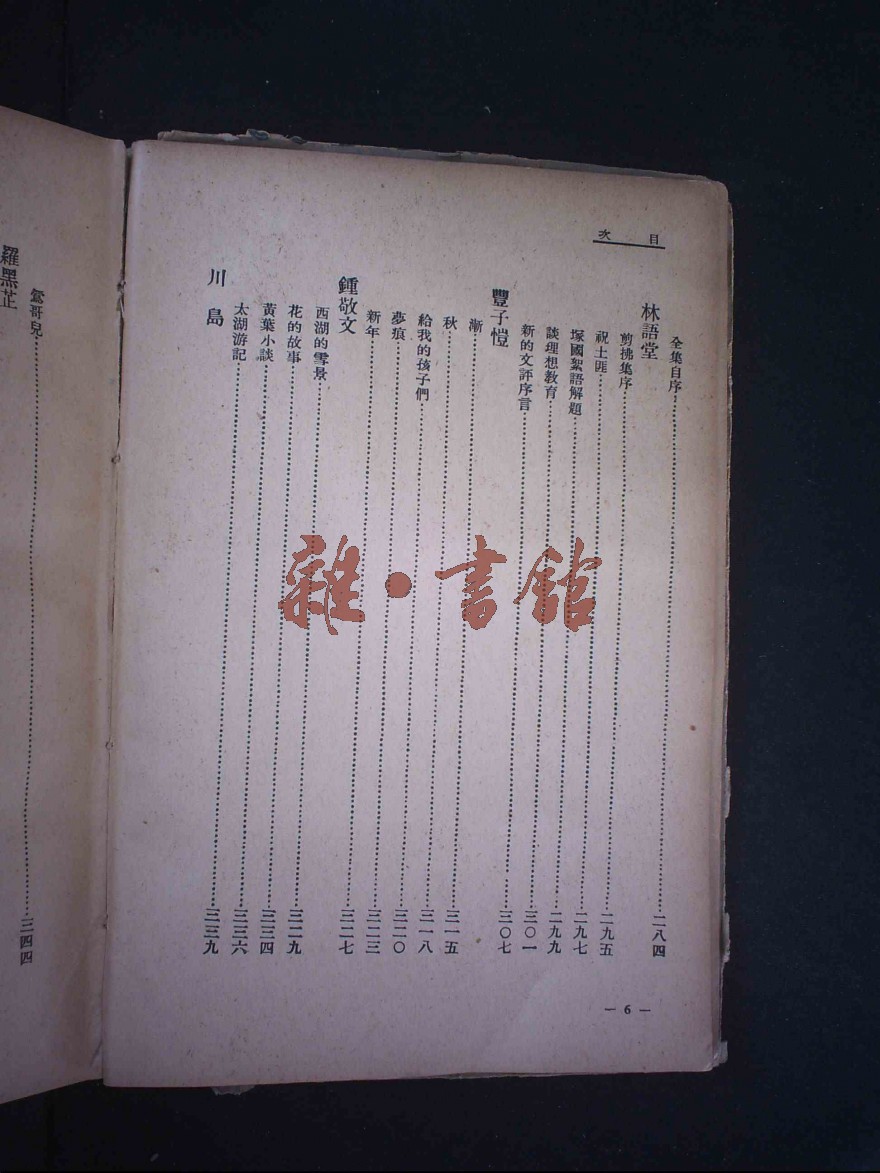 目次
全集自序……二八四
林語堂
剪拂集序……二九五
祝土匪……二九七
塚國絮語解題……二九九
談理想教育……三〇一
新的文評序言……三〇七
豐子愷
漸……三一五
秋……三一八
給我的孩子們……三二〇
夢痕……三二三
新年……三二七
鍾敬文
西湖的雪景……三二九
花的故事……三三四
黃葉小談……三三六
太湖游記……三三九
川島
— 6 —
哥兒……三四四
羅黑芷
雜·書館